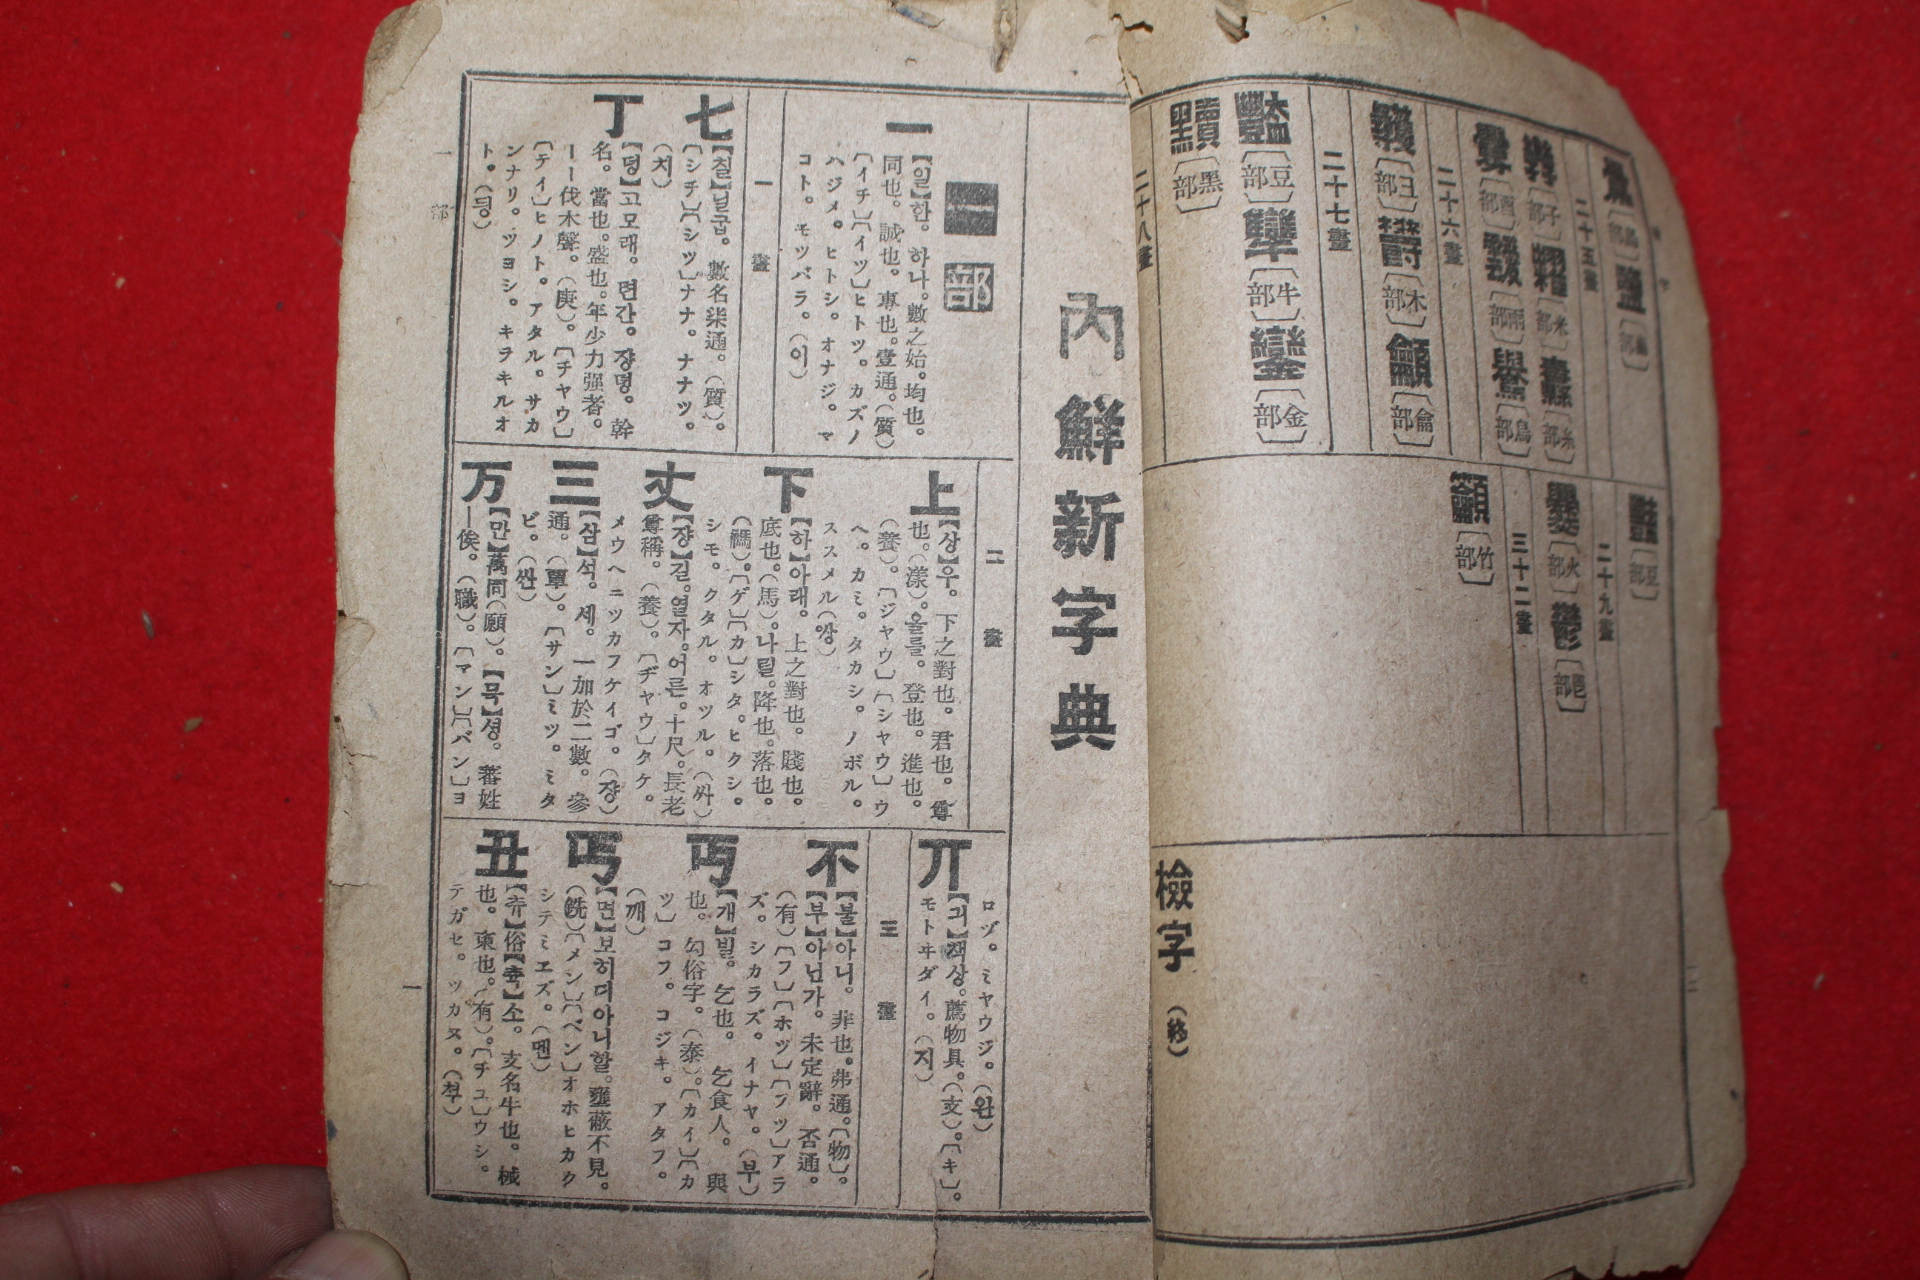 二十五畫
鹽
二十六畫
釁〔酉部〕
糶〔米部〕
鱟
〔木部〕
龥〔龠部〕
二十七畫
豔〔豆部〕
犫〔牛部〕
鑾〔金部〕
二十八畫
黷〔黑部〕
二十九畫
爨〔火部〕
鬱〔鬯部〕
三十二畫
籲〔竹部〕
檢字(終)
內鮮新字典
一部
一【일】한。하나。數之始。均也。
同也。誠也。專也。壹通。(質)
〔イチ〕〔イツ〕ヒトツ。カズノ
ハジメ。ヒトシ。オナジ。マ
コト。モツバラ。(이)
一畫
七【칠】닐굽。數名柒通。(質)。
〔シチ〕〔シツ〕ナナ。ナナツ。
(치)
丁【뎡】고모래。뎐간。쟝뎡。幹
名。當也。盛也。年少力强者。
ーー伐木聲。(庚)。〔チヤウ〕
〔テイ〕ヒノト。アタル。サカ
ンナリ。ツヨシ。キラキルオ
ト。(딩)
二畫
上【상】우。下之對也。君也。尊
也。(漾)。올를。登也。進也。
(養)。〔ジヤウ〕〔シヤウ〕ウ
ヘ。カミ。タカシ。ノボル。
ススメル(썅)
下【하】아래。上之對也。賤也。
底也。(馬)。나릴。降也。落也。
(禡)。〔ゲ〕〔カ〕シタ。ヒクシ。
シモ。クタル。オツル。(싸)
丈【쟝】길。열자。어른。十尺。長老
尊稱。(養)。〔ヂヤウ〕タケ。
メウヘニツカフケイゴ。(쟝)
三【삼】석。세。一加於二數。參
通。(覃)。〔サン〕ミツ。ミタ
ビ。(싼)
万【만】萬同(願)。【묵】셩。蕃姓
ー俟。(職)。〔マン〕〔バン〕ヨ
ロヅ。ミヤウジ。(완)
丌【긔】책상。薦物具。(支)。〔キ〕。
モトヰダイ。(지)
三畫
不【불】아니。非也。弗通。〔物〕。
【부】아닌가。未定辭。否通。
(有)〔フ〕〔ホツ〕〔フツ〕アラ
ズ。シカラズ。イナヤ。(부)
丐【개】빌。乞也。乞食人。與
也。匃俗字。(泰)。〔カイ〕〔カ
ツ〕コフ。コジキ。アタフ。
(깨)
丏【면】보히디아니할。壅蔽不見。
(銑)〔メン〕〔ベン〕オホヒカク
シテミエズ。(멘)
丑【츄】俗【축】소。支名牛也。械
也。束也。(有)。〔チユ〕ウシ。
テガセ。ツカヌ。(척)
一部
一